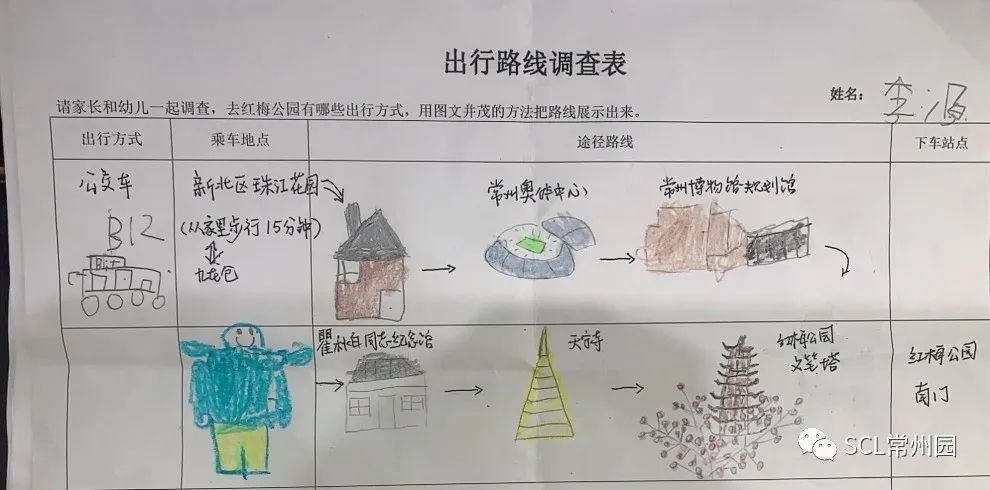 出行路线调查表
姓名：李源
请家长和幼儿一起调查，去红梅公园有哪些出行方式，用图文并茂的方法把路线展示出来。
出行方式 乘车地点 途径路线 下车站点
公交车
B12
新北区珠江花园
(从家里步行15分钟)
常州奥体中心
常州博物馆规划馆
B1
瞿秋白同志纪念馆
天宁寺
红梅公园
文笔塔
红梅公园
南门
SCL常州园